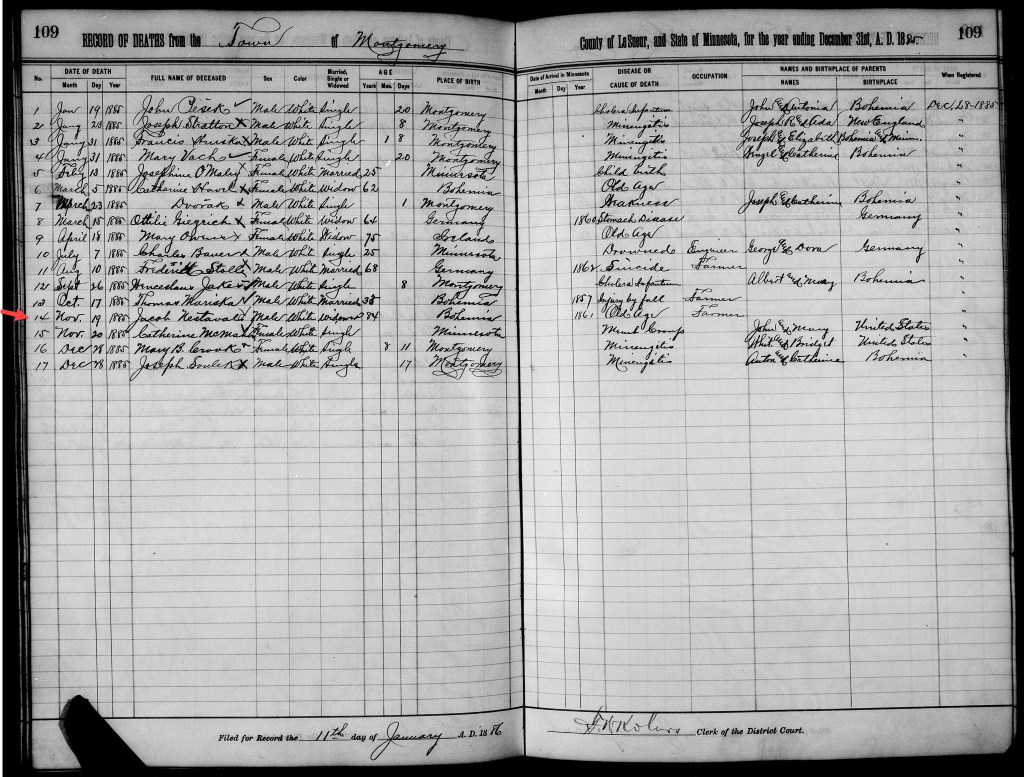 109
RECORD OF DEATHS from the Town of Montgomery County of LeSueur, and State of Minnesota, for the year ending December 31st, A. D. 1885. 109
No. DATE OF DEATH FULL NAME OF DECEASED Sex Color Married, Single or Widowed AGE PLACE OF BIRTH Date of Arrival in Minnesota DISEASE OR CAUSE OF DEATH OCCUPATION NAMES AND BIRTHPLACE OF PARENTS When Registered
Month Day Year Years Mos. Days Month Day Year NAMES BIRTHPLACE
1 Jan 19 1885 John Male White Single 20 Montgomery Cholera Infantum John & Antonia Bohemia Dec. 28-1885
2 Jany 23 1885 Joseph Stratton x Male White Single 8 Montgomery Joseph R & Ada New England "
3 Jany 31 1885 Francis x Male White Single 1 8 Montgomery Joseph & Elizabeth Bohemia & Minn. "
4 Jany 31 1885 Mary Vach Female White Single 20 Montgomery & Catherine Bohemia "
5 13 1885 Josephine O'Maley x Female White Married 25 Minnesota Child birth "
6 March 5 1885 Catharine x Female White Widow 62 Bohemia Old Age "
7 March 23 1885 Dvořák x Male White Single 1 Montgomery Weakness Joseph & Catherine Bohemia "
8 March 15 1885 Ottilie Giegrich x Female White Widow 64 Germany 1860 Stomach Disease Germany "
9 April 18 1885 Mary Owens x Female White Widow 75 Ireland Old Age "
10 July 7 1885 Charles Bauer x Male White Single 25 Minnesota Drowned Engineer George & Dora Germany "
11 Aug 10 1885 x Male White Married 68 Germany 1862 Suicide Farmer "
12 Sept 26 1885 x Male White Single 8 Montgomery Cholera Infantum Albert & Mary Bohemia "
13 Oct. 17 1885 Thomas x Male White Married 38 Bohemia 1857 Injury by fall Farmer "
14 Nov. 19 1885 Jacob Nestaval x Male White Widowed 84 Bohemia 1861 Old Age Farmer "
15 Nov. 20 1885 Catherine x Female White Single Minnesota Croup John & Mary United States "
16 Dec 28 1885 Mary B. Crook Female White Single 8 11 Montgomery & Bridget United States "
17 Dec 28 1885 Joseph x Male White Single 17 Montgomery Anton & Catherine Bohemia "
Filed for Record the 11th day of January A. D. 1886 Clerk of the District Court.